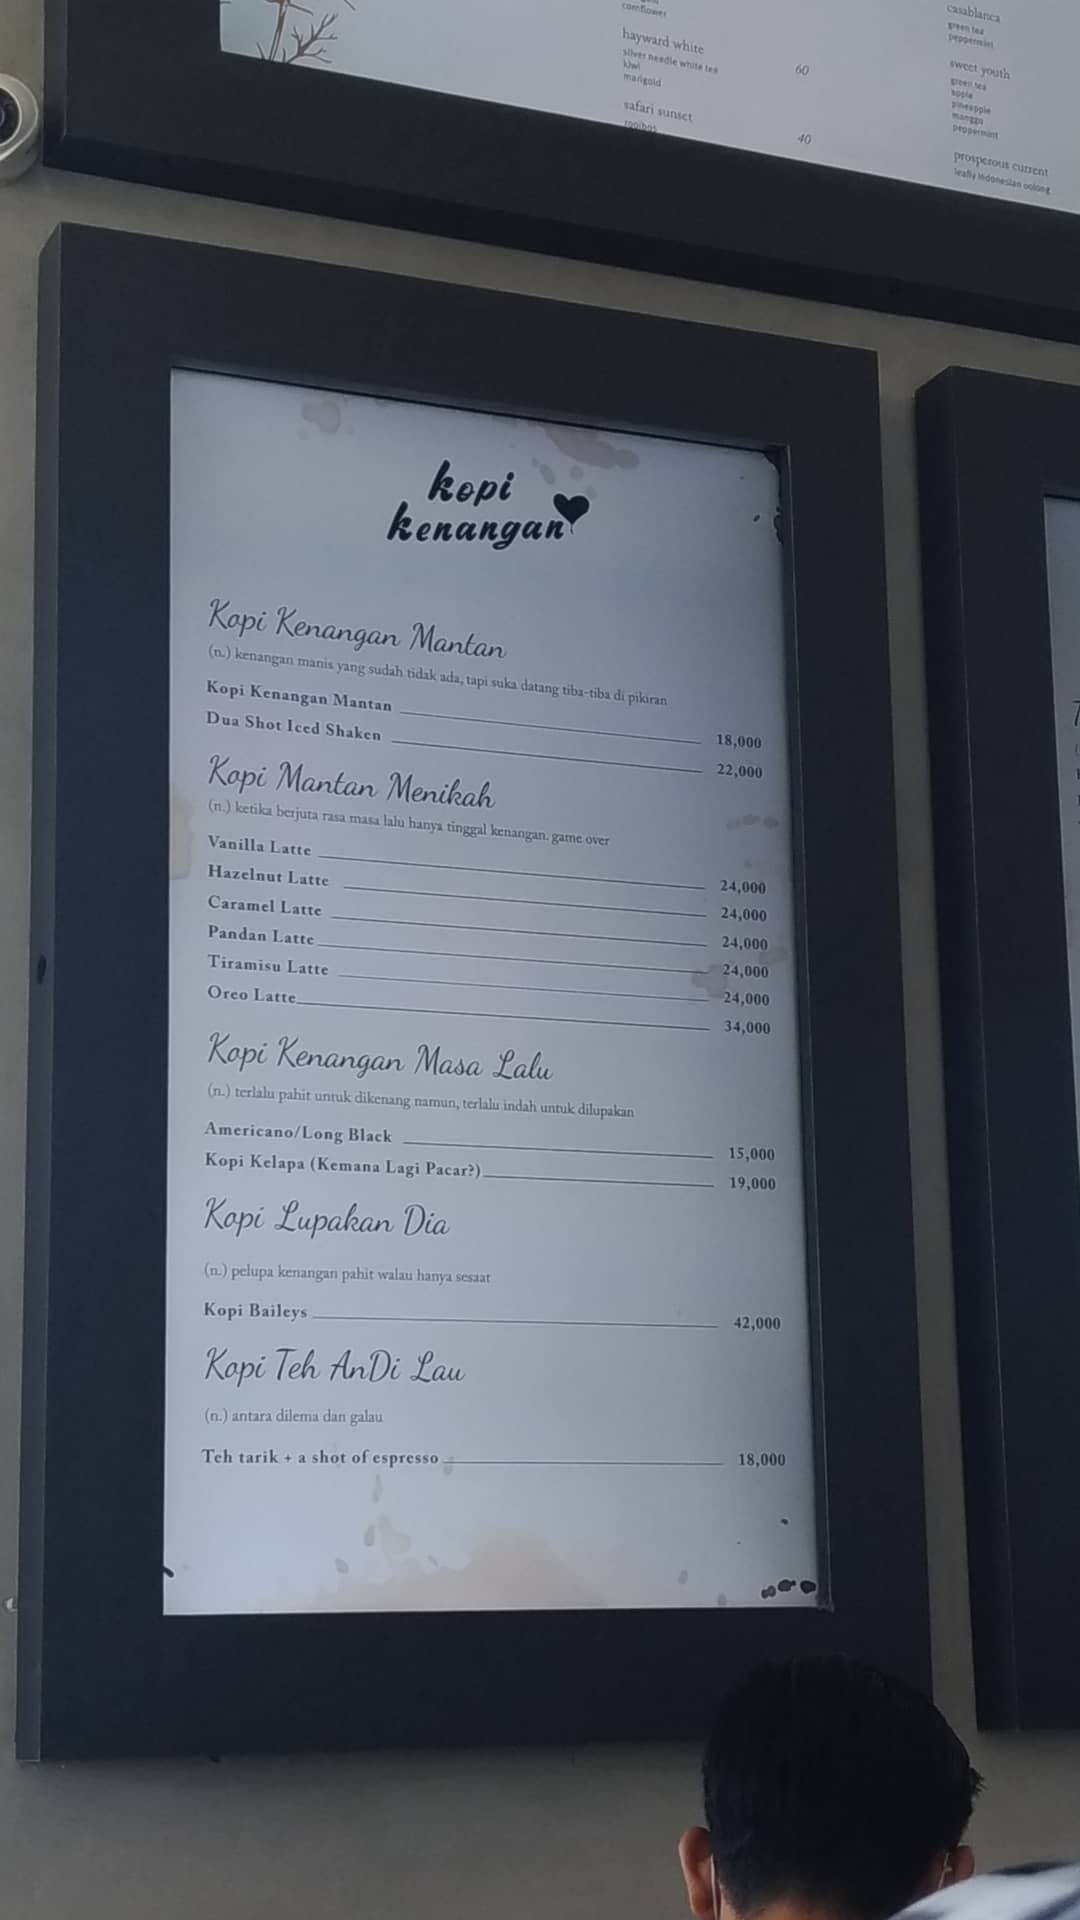 cornflower
hayward white
silver needle white tea
kiwi
marigold
60
safari sunset
rooibos
40
casablanca
green tea
peppermint
sweet youth
green tea
apple
pineapple
manggo
peppermint
prosperous current
leafly indonesian oolong
kopi
kenangan
Kopi Kenangan Mantan
(n.) kenangan manis yang sudah tidak ada, tapi suka datang tiba-tiba di pikiran
Kopi Kenangan Mantan 18,000
Dua Shot Iced Shaken 22,000
Kopi Mantan Menikah
(n.) ketika berjuta rasa masa lalu hanya tinggal kenangan. game over
Vanilla Latte 24,000
Hazelnut Latte 24,000
Caramel Latte 24,000
Pandan Latte 24,000
Tiramisu Latte 24,000
Oreo Latte 34,000
Kopi Kenangan Masa Lalu
(n.) terlalu pahit untuk dikenang namun, terlalu indah untuk dilupakan
Americano/Long Black 15,000
Kopi Kelapa (Kemana Lagi Pacar?) 19,000
Kopi Lupakan Dia
(n.) pelupa kenangan pahit walau hanya sesaat
Kopi Baileys 42,000
Kopi Teh AnDi Lau
(n.) antara dilema dan galau
Teh tarik + a shot of espresso 18,000